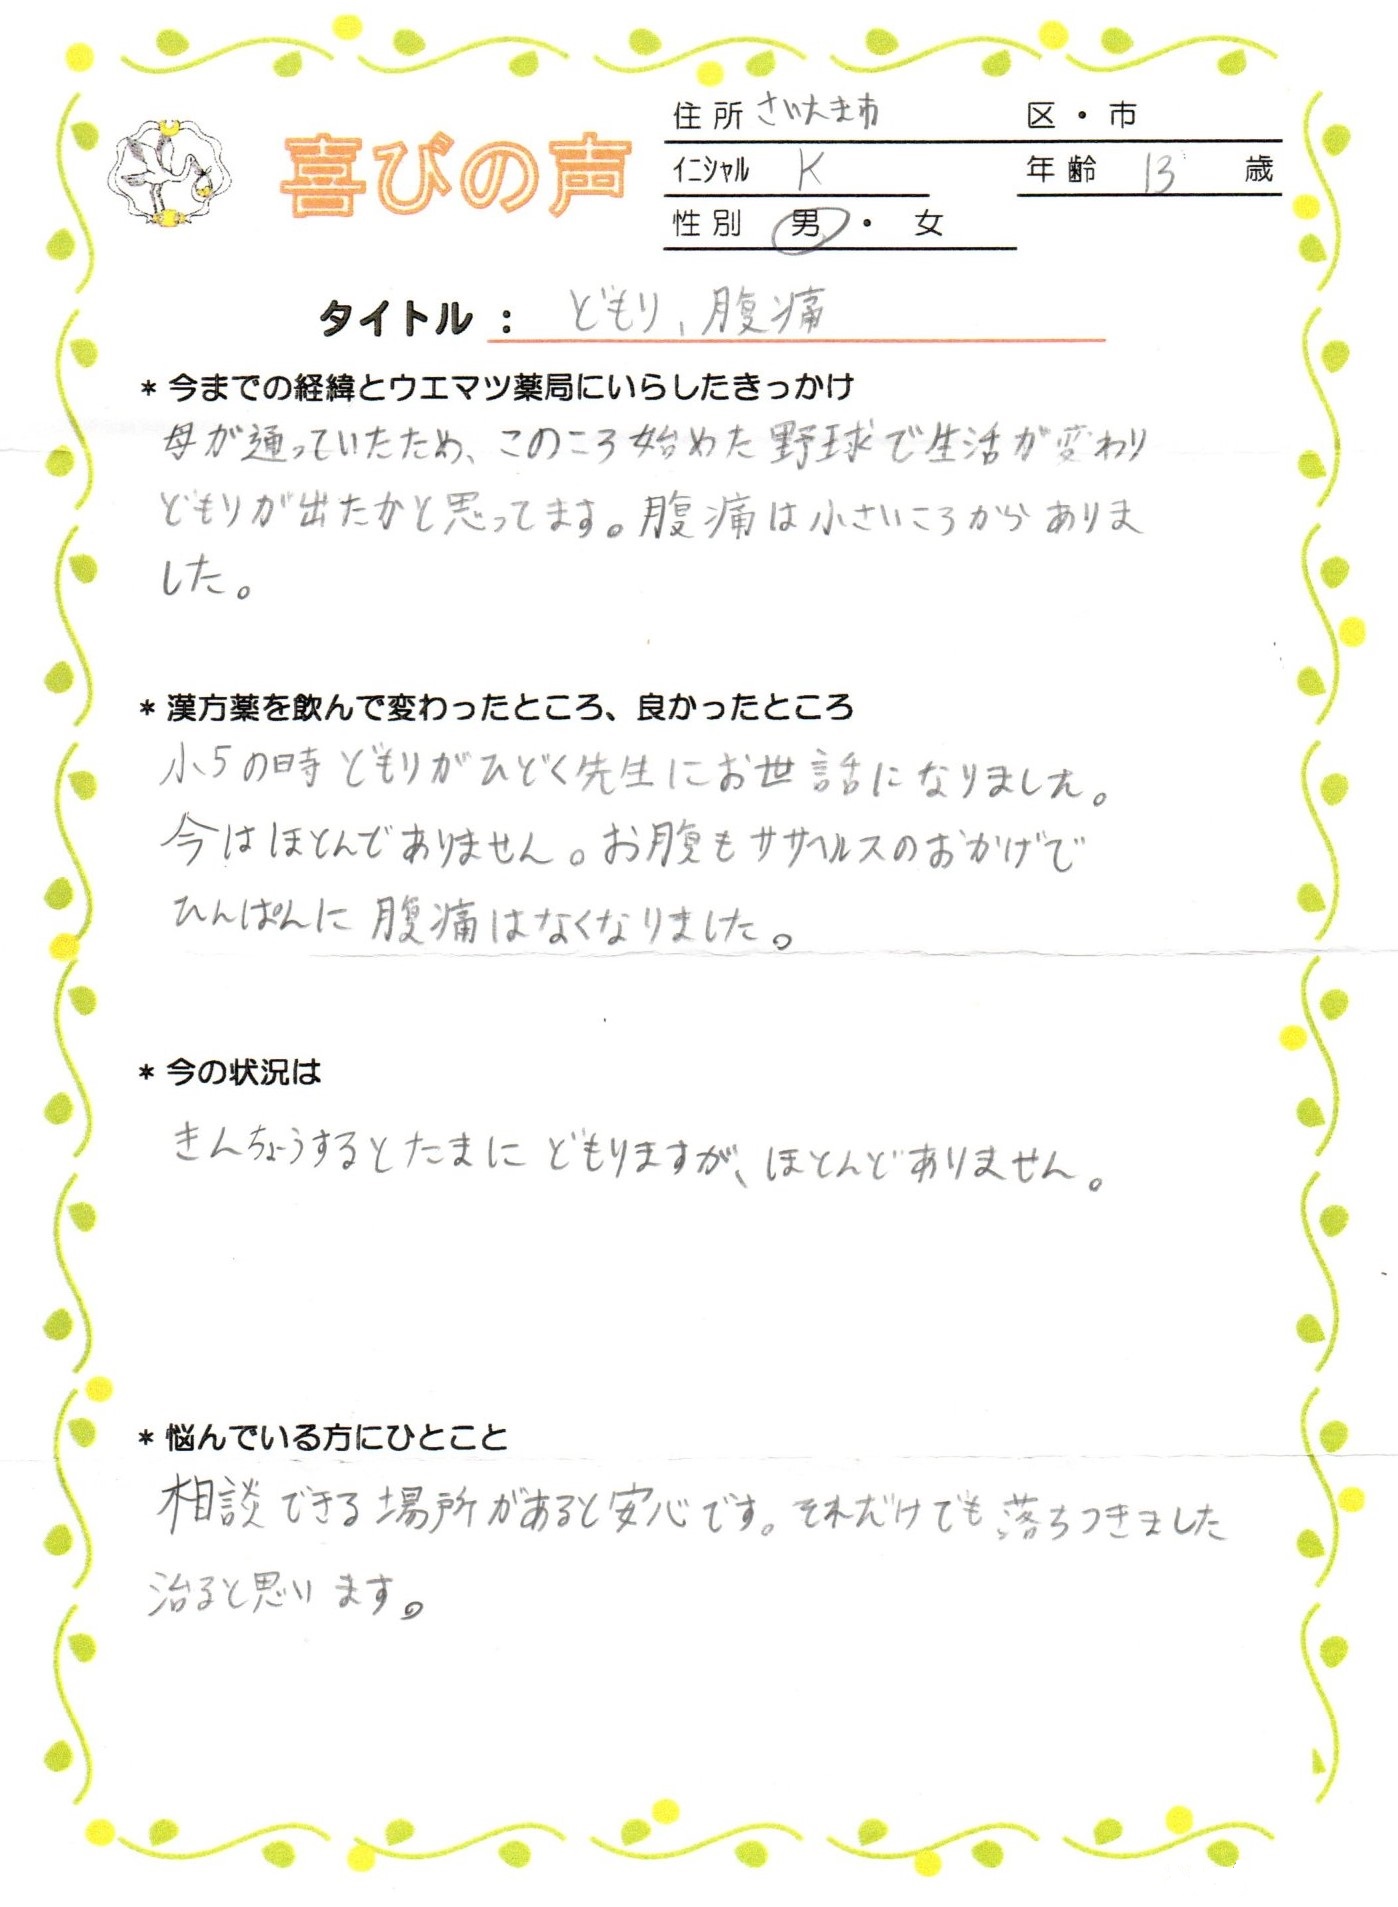 喜びの声
住所 さいたま市 区・市
イニシャル K 年齢 13 歳
性別 男・女
タイトル： どもり、腹痛
* 今までの経緯とウエマツ薬局にいらしたきっかけ
母が通っていたため、このころ始めた野球で生活が変わり
どもりが出たかと思ってます。腹痛は小さいころからありま
した。
* 漢方薬を飲んで変わったところ、良かったところ
小5の時どもりがひどく先生にお世話になりました。
今はほとんでありません。お腹もササヘルスのおかげで
ひんぱんに腹痛はなくなりました。
* 今の状況は
きんちょうするとたまにどもりますが、ほとんどありません。
* 悩んでいる方にひとこと
相談できる場所があると安心です。それだけでも落ちつきました
治ると思います。